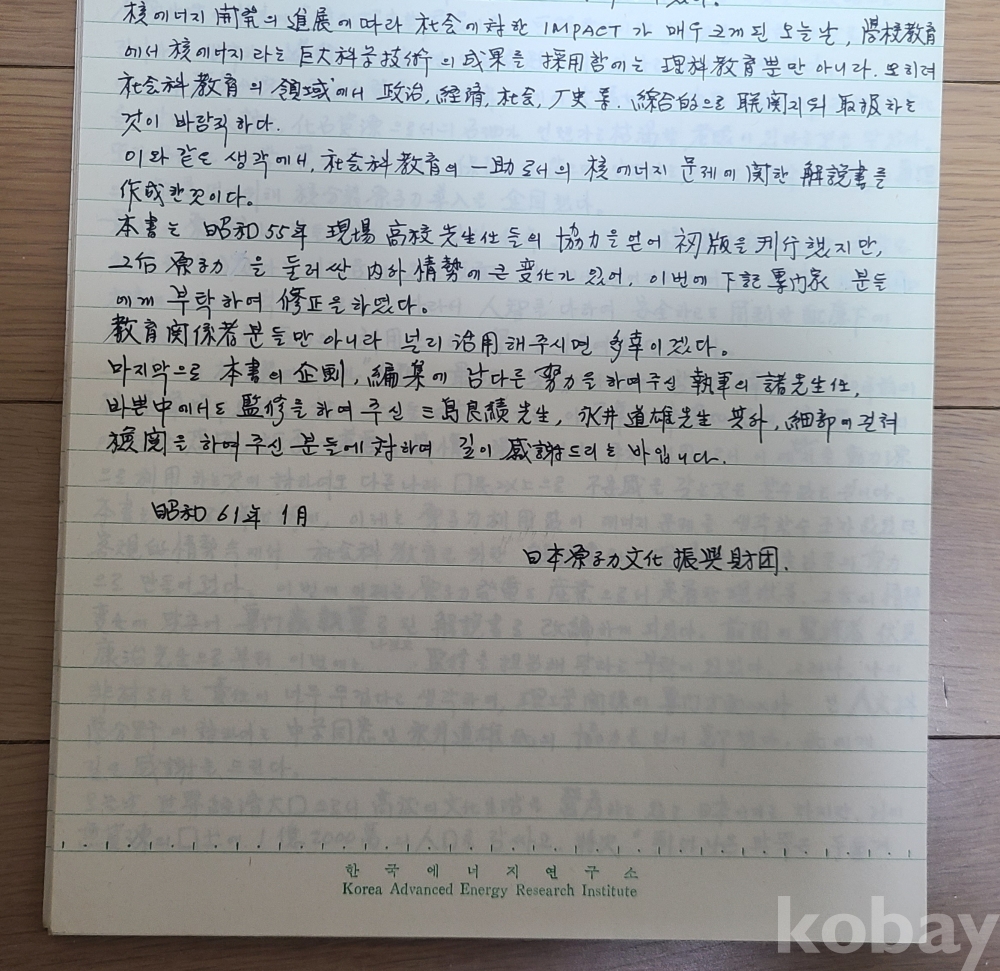 核에너지 開発의 進展에 따라 社会에 対한 IMPACT 가 매우 크게 된 오늘날, 学校教育
에서 核에너지 라는 巨大科学技術의 成果를 採用함에는 理科教育뿐만 아니라. 오히려
社会科教育의 領域에서 政治, 経済, 社会, 厂史 등. 綜合的으로 聯関지워 取扱하는
것이 바람직 하다.
이와 같은 생각에서, 社会科教育의 一助로서의 核에너지 문제에 関한 解説書를
作成한 것이다.
本書는 昭和 55年 現場 高校先生任들의 協力을 얻어 初版을 刊行했지만,
그后 原子力 을 둘러싼 内外情勢에 큰 变化가 있어, 이번에 下記 専門家 분들
에게 부탁하여 修正을 하였다.
教育関係者분들만 아니라 널리 活用해주시면 多幸이겠다.
마지막으로 本書의 企劃, 編集에 남다른 努力을 하여주신 執筆의 諸先生任,
바쁜中에서도 監修를 하여 주신 三島良績先生, 永井道雄先生 其外, 細部에 걸쳐
検閲을 하여주신 분들에 対하여 깊이 感謝드리는 바입니다.
昭和 61年 1月
日本原子力文化 振興財団.
한국에너지연구소
Korea Advanced Energy Research Institute
kobay